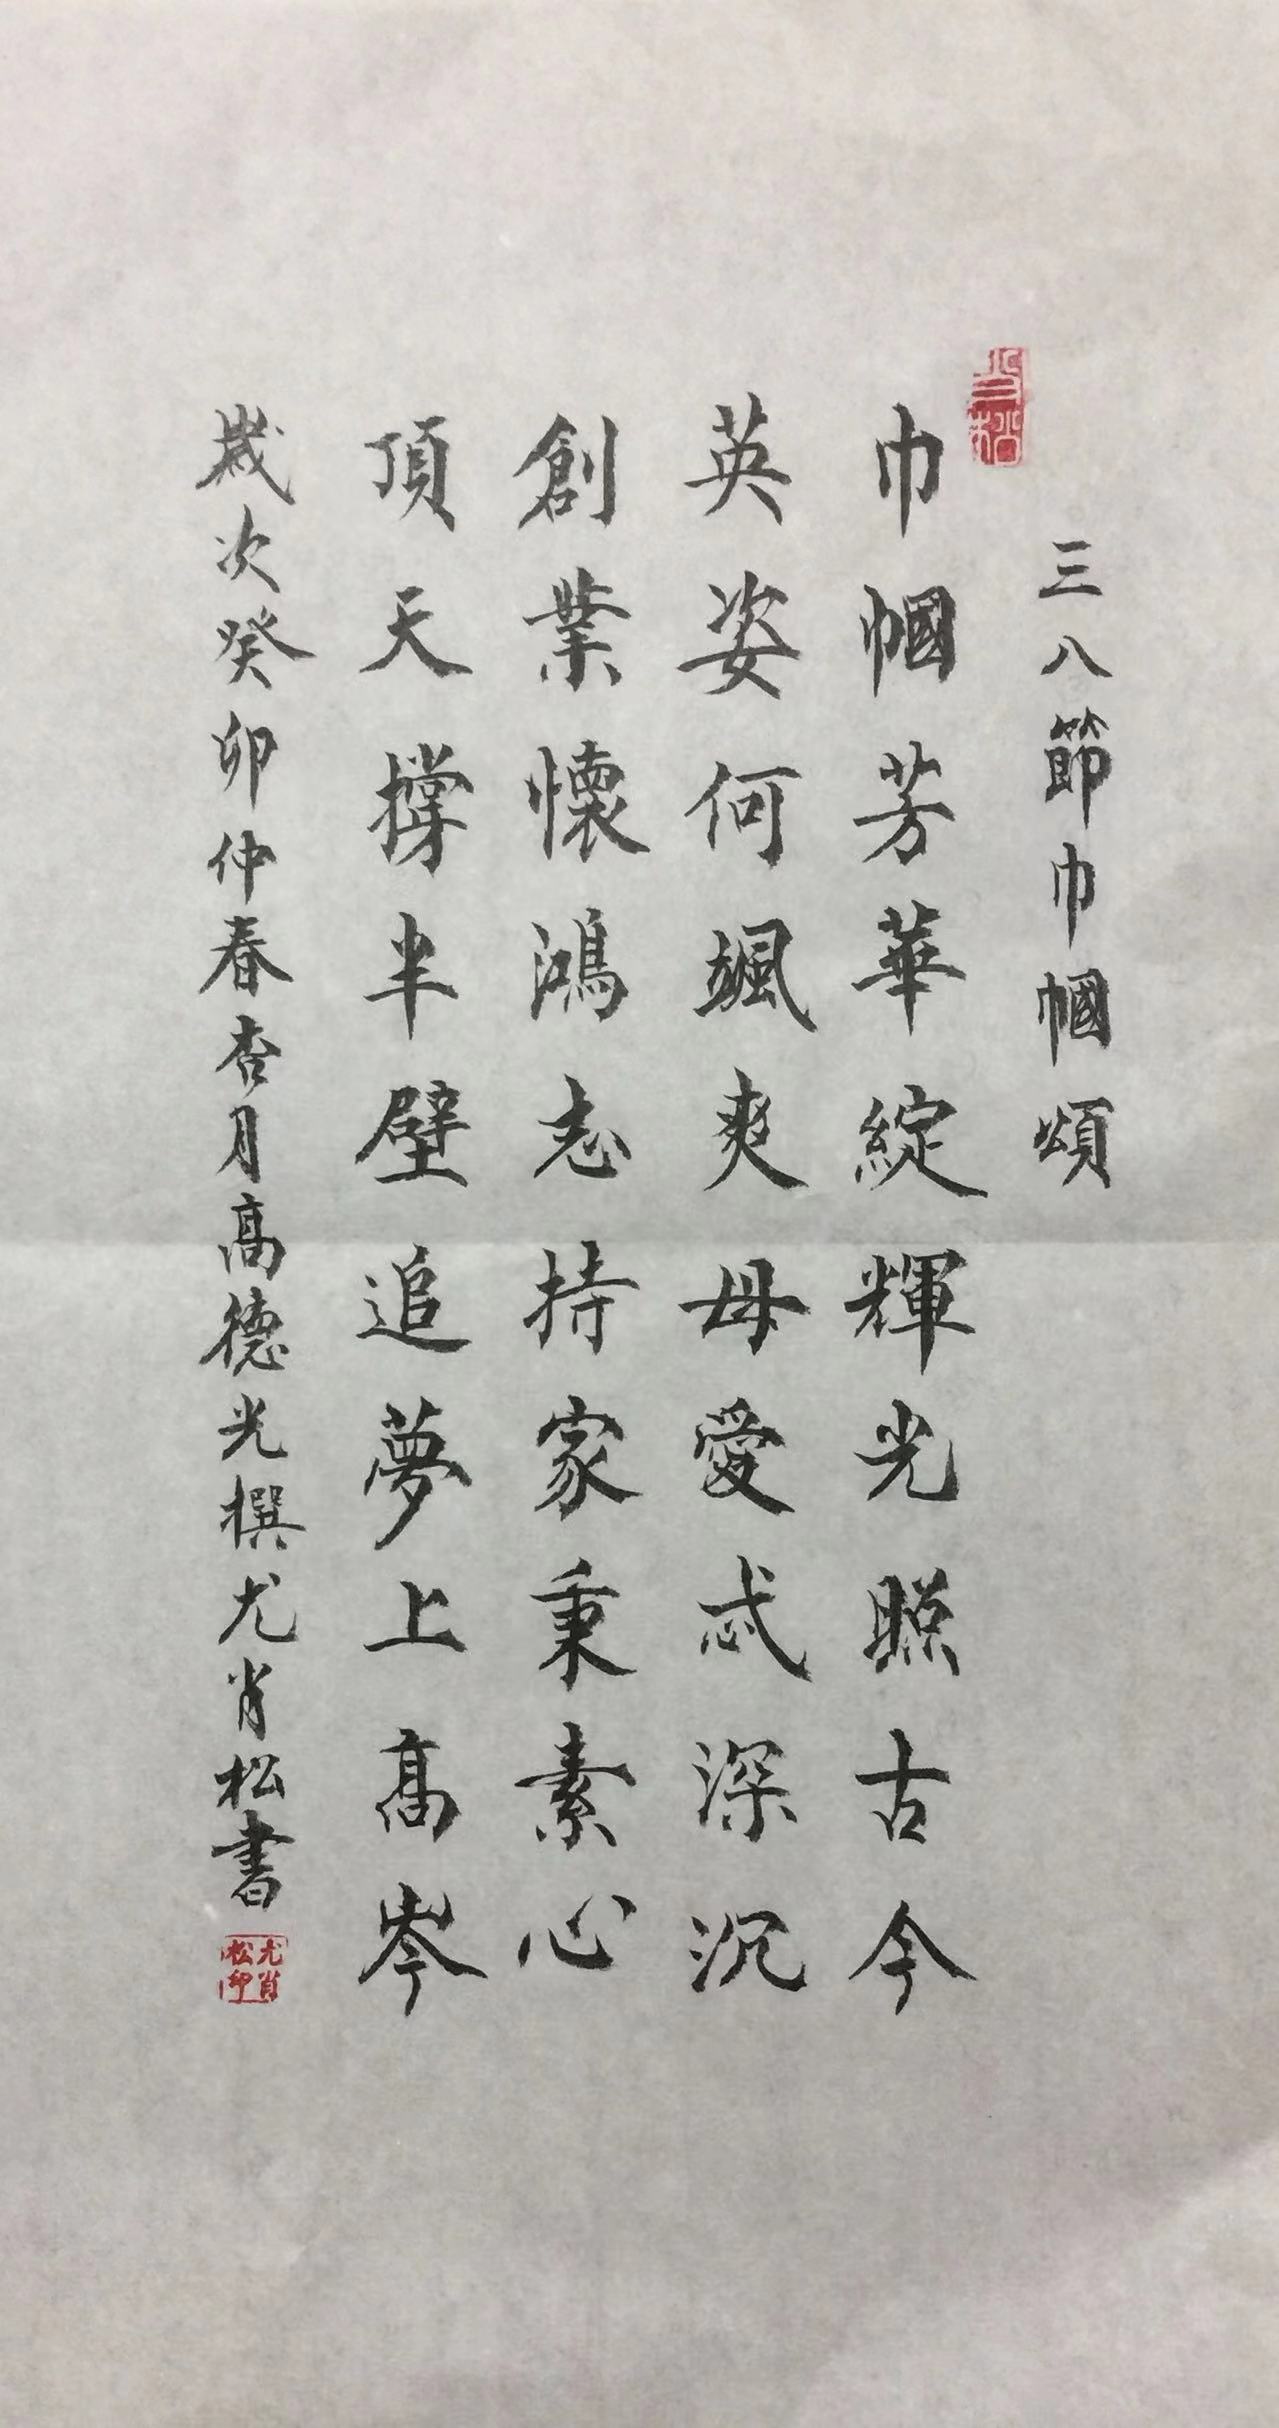 三八節巾幗頌
巾幗芳華綻輝光照古今
英姿何颯爽母愛忒深沉
創業懷鴻志持家秉素心
頂天撐半壁追夢上高岑
歲次癸卯仲春杏月高德光撰尤肖松書
肖松
尤肖松印